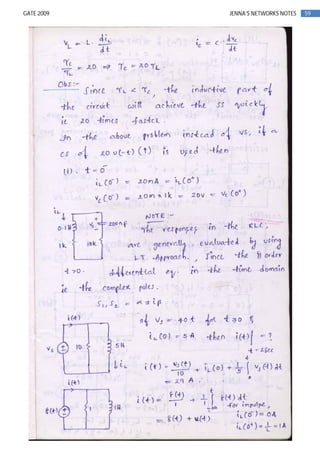 GATE 2009
JENNA'S NETWORKS NOTES 59
V_L = L. di_L/dt i_C = C dv_C/dt
T_C/T_L = 20 ⇒ T_C = 20 T_L.
Obs:-
Since T_L < T_C, the inductive part of
the circuit will achieve the SS quickly
ie 20 times faster.
In the above problem instead of VS, if a
CS of 20 u(-t) (↑) is used then
(i). t = 0⁻
i_L(0⁻) = 20mA = i_L(0⁺)
V_C(0⁻) = 20m × 1k = 20V = V_C(0⁺)
i_L
0.1H V_C 200nF
NOTE :-
The responses in the RLC,
1k 10k are generally evaluated by using
LT Approach., Since the II order
t>0. differential eq. in the time domain
ie the complex poles.
S₁, S₂ = α ± jβ
i(t)
If V_S = 40t for t>0 &
i_L(0) = 5A then i(t)| = ?
t = 2sec
V_S 10 5H
i_L
i(t) = V_S(t)/10 + i_L(0) + 1/5 ∫ V_S(t) dt
i(t) = 29 A.
i(t) = δ(t)/1 + 1/1 ∫ δ(t) dt
for impulse,
δ(t) 1 1H
= δ(t) + u(t). i_L(0⁻) = 0A
i_L(0⁺) = 1/L = 1A